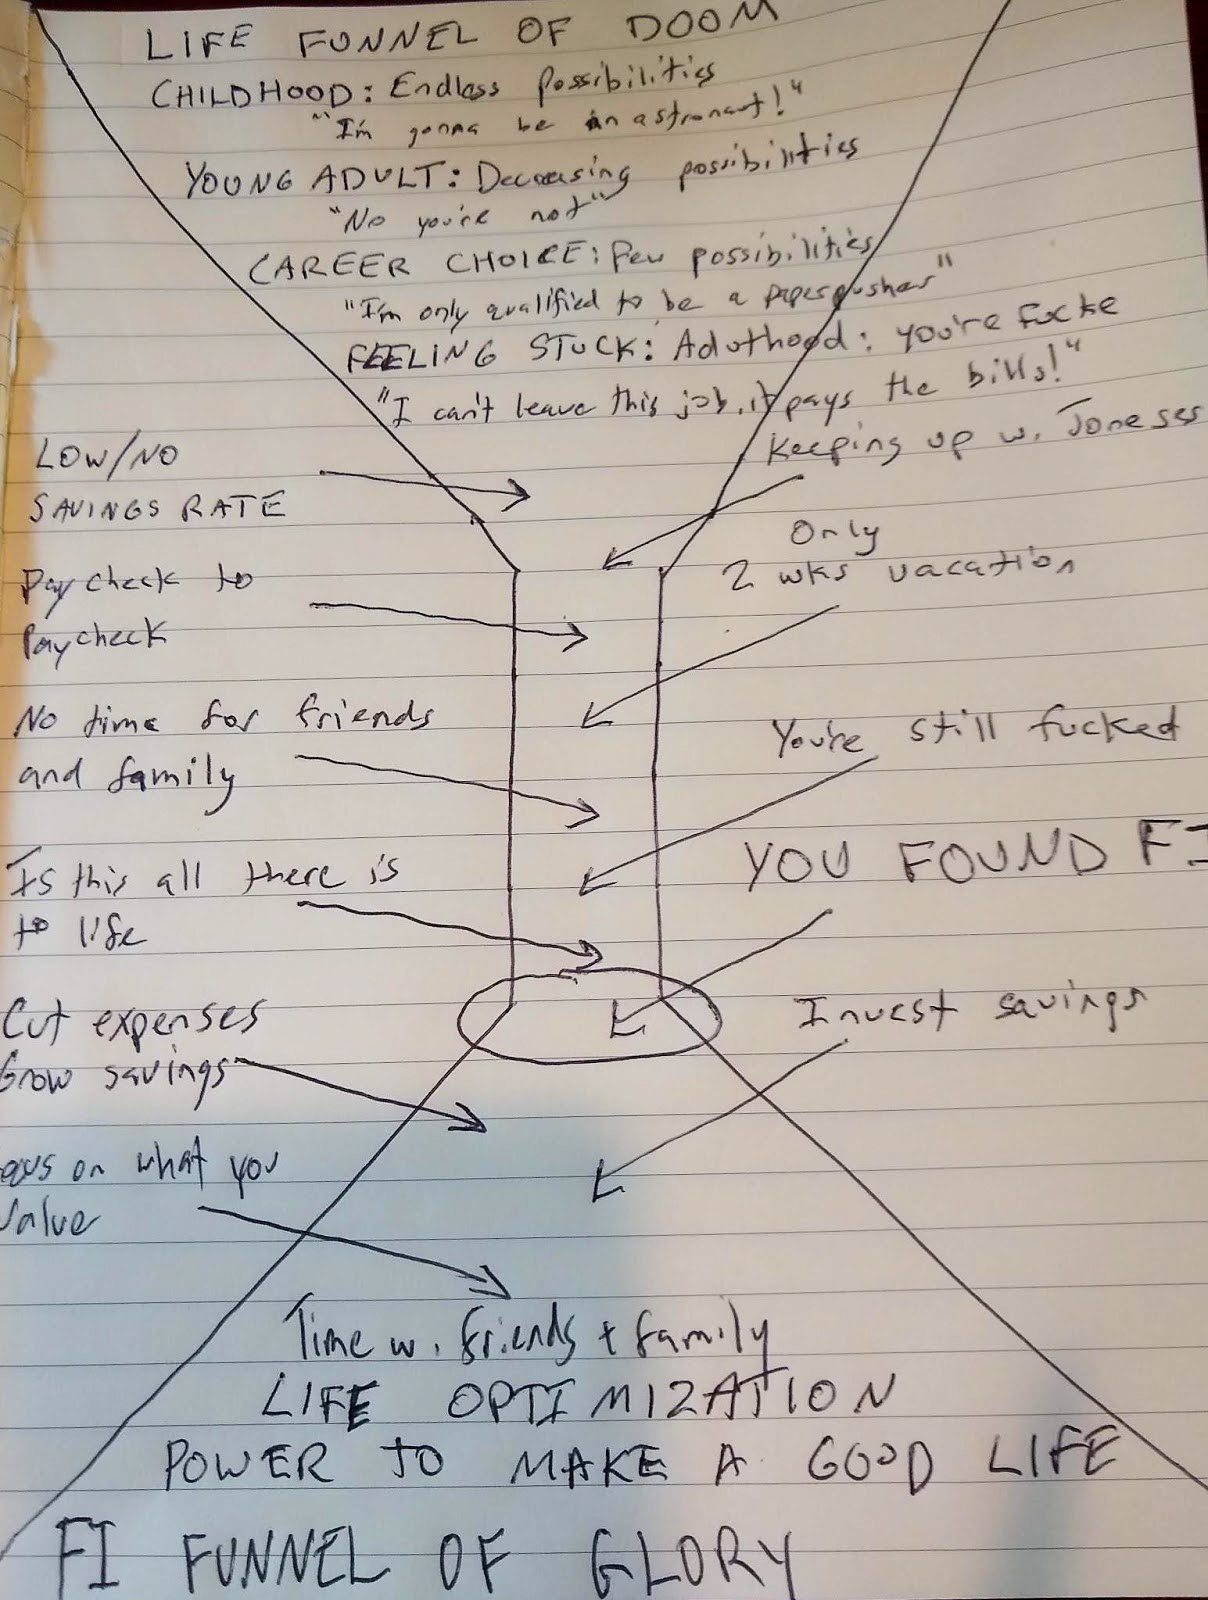 LIFE FUNNEL OF DOOM
CHILDHOOD: Endless possibilities
"I'm gonna be an astronaut!"
YOUNG ADULT: Decreasing possibilities
"No you're not"
CAREER CHOICE: Few possibilities
"I'm only qualified to be a paperpusher"
FEELING STUCK: Aduthood: You're fucke
"I can't leave this job, it pays the bills!"
Keeping up w. Joneses
LOW/NO
SAVINGS RATE
Only
2 wks vacation
Paycheck to
Paycheck
No time for friends
and family
You're still fucked
YOU FOUND FI
Is this all there is
to life
Cut expenses
Grow savings
Invest savings
ocus on what you
Value
Time w. friends + family
LIFE OPTIMIZATION
POWER TO MAKE A GOOD LIFE
FI FUNNEL OF GLORY